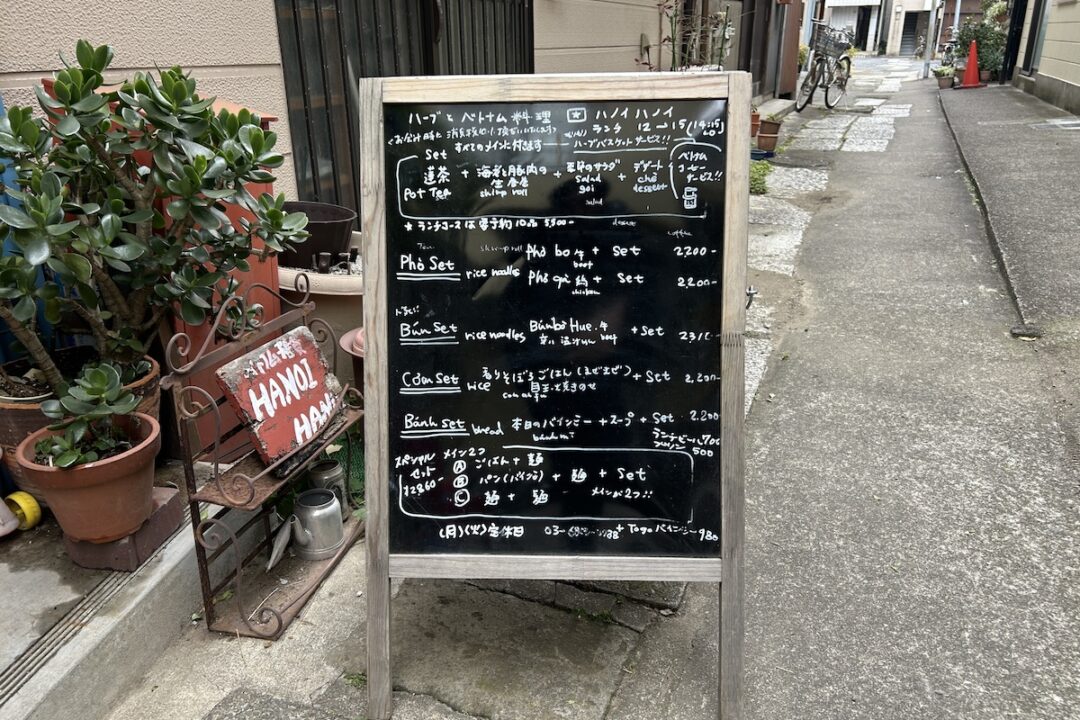 ハーブとベトナム料理 ★ ハノイハノイ
ランチ 12→15(14:15
すべてのメインに付きます ハーブバスケットサービス!!
Set
蓮茶 + 海老と豚肉の生春巻 + 季節のサラダ + デザート
Pot Tea shrimp roll salad goi chè dessert
ベトナムコーヒーサービス!!
salad dessert
★ ランチコースは要予約 10品 5,500-
coffee
Tea shrimp roll
Phở Set rice noodles phở bò 牛 + Set 2200-
beef
phở gà 鶏 + Set 2200-
chicken
Bún Set rice noodles Bún bò Huế 牛 + Set
辛い beef
Cơm Set rice 香りそぼろごはん(まぜまぜ) + Set 2,200-
目玉やきのせ
Bánh Set bread 本日のバインミー + スープ + Set 2,200
bánh mì
ランチビール 700
500
スペシャルセット メイン2つ
¥2860-
Ⓐ ごはん + 麺
Ⓑ パン(バインミー) + 麺 + Set
Ⓒ 麺 + 麺 メインが2つ!!
(月)(火)定休日 03- + To go バインミー 980
ベトナム雑貨
HANOI
HAN